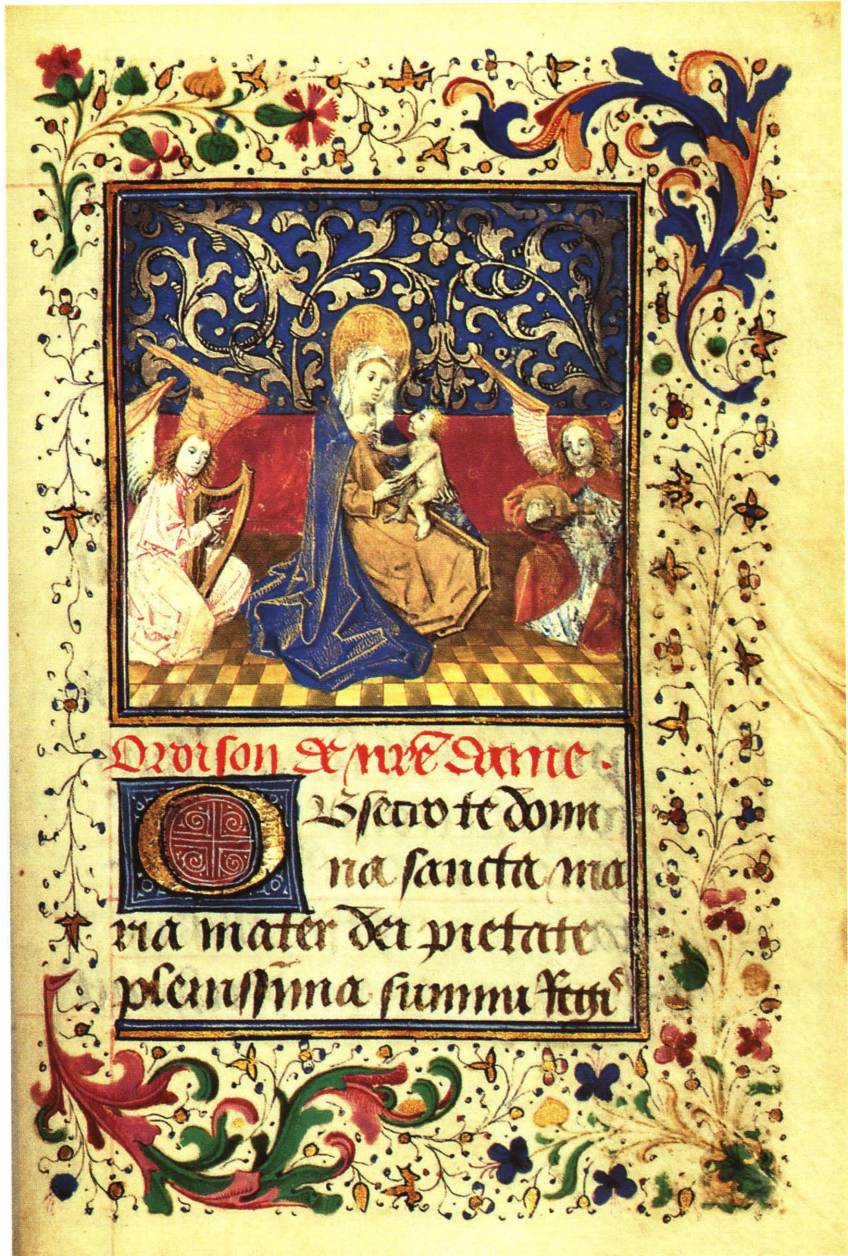 37
Oroison de nr̃e dame.
Obsecro te domi
na sancta ma
ria mater dei pietate
plenissima summi Regis